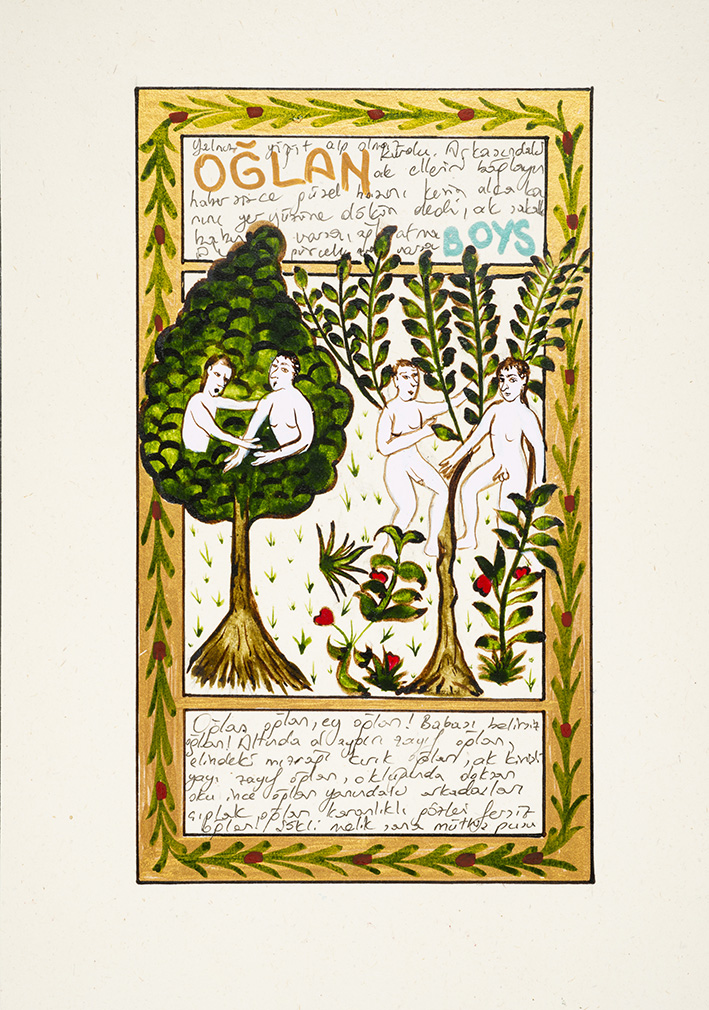 yiğit alp
OĞLAN kurdu. Arkasındaki
ak ellerin bağlayın
habersizce güzel başını kesin alca ka
nını yer yüzüne dökün dedi, ak sakallı
varsa, ağlatma
varsa BOYS
Oğlan oğlan, ey oğlan! Babası belirsiz
oğlan! Altında al aygırı zayıf oğlan,
elindeki mızrağı kırık oğlan, ak kirişli
yayı zayıf oğlan, okluğunda doksan
oku ince oğlan yanındaki arkadaşları
çıplak oğlan karanlıklı gözleri fersiz
oğlan! Şökli melik sana müthiş pusu